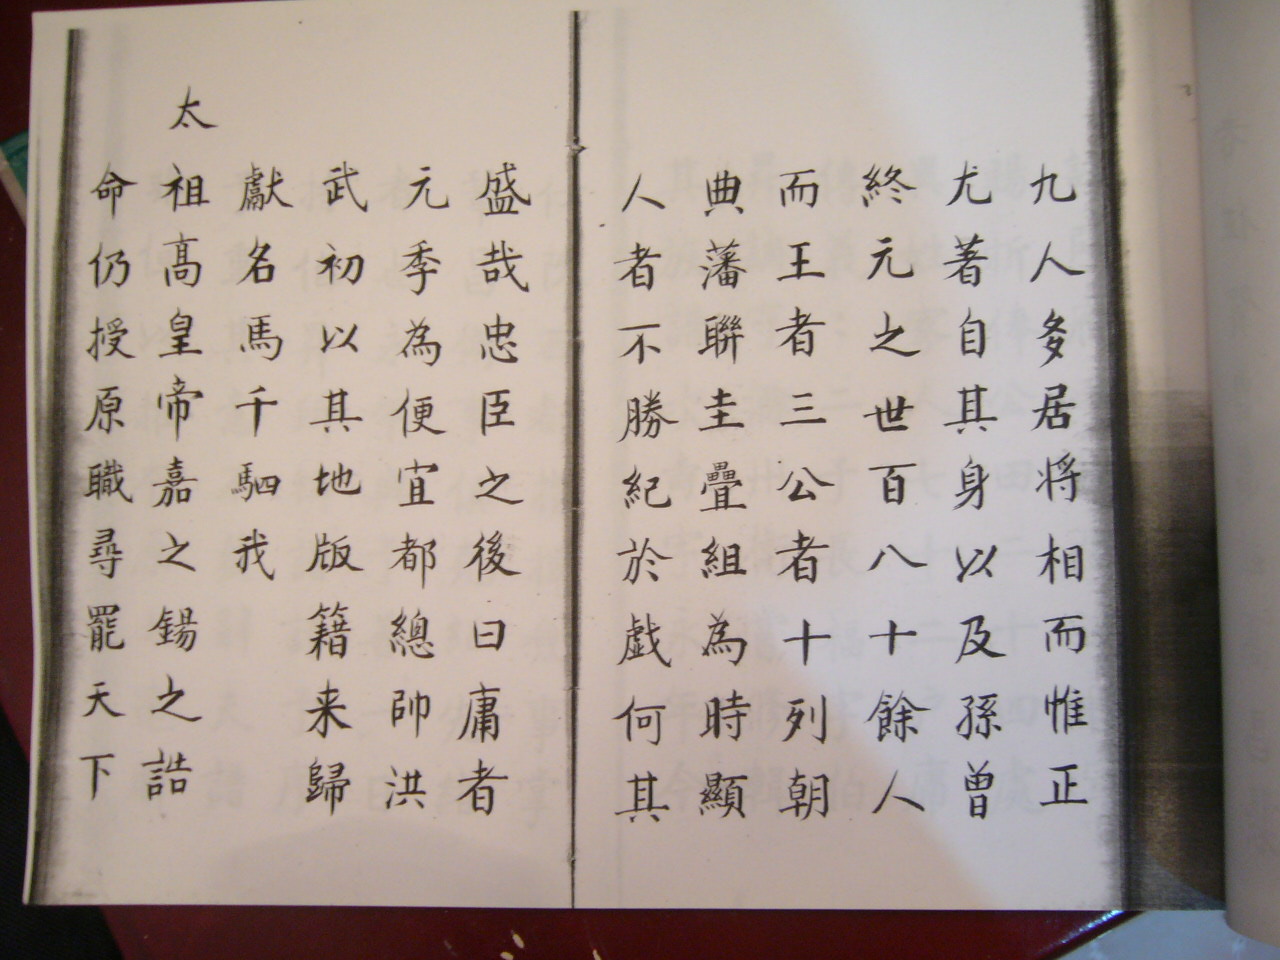 九人多居将相而惟正
尤著自其身以及孫曾
終元之世百八十餘人
而王者三公者十列朝
典藩聯圭疊組為時顯
人者不勝紀於戲何其
盛哉忠臣之後曰庸者
元季為便宜都總帥洪
武初以其地版籍来歸
獻名馬千駟我
太祖高皇帝嘉之錫之誥
命仍授原職尋罷天下